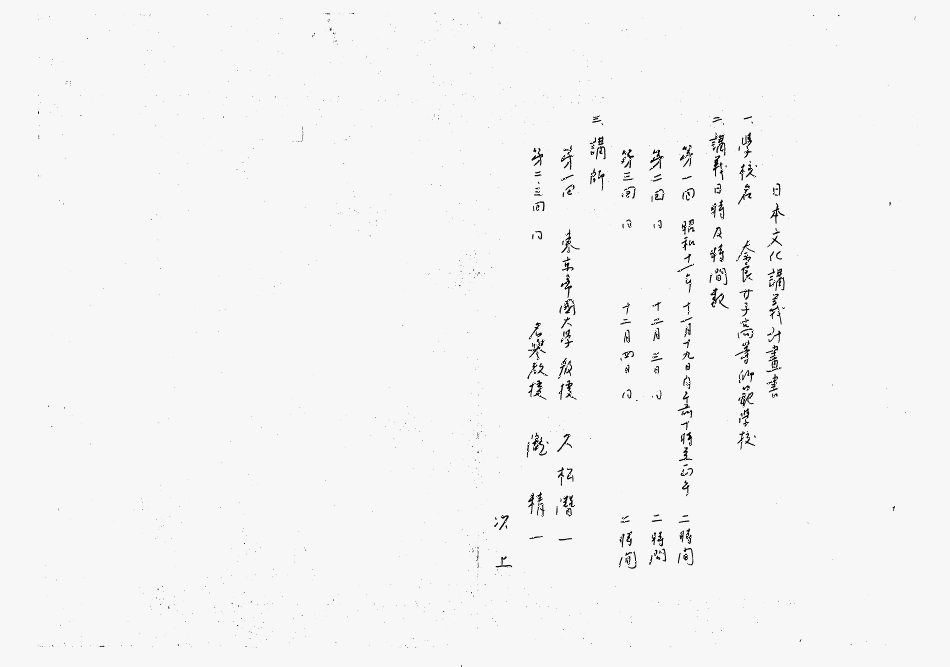 日本文化講義計畫書
一、學校名 奈良女子高等師範學校
二、講義日時及時間數
第一回 昭和十一年十一月十九日自午前十時至正午 二時間
第二回 〃 十二月三日 〃 二時間
第三回 〃 十二月四日 〃 二時間
三、講師
第一回 東京帝國大學教授 久松潛一
第二、三回 〃 名譽教授 瀧精一
以上